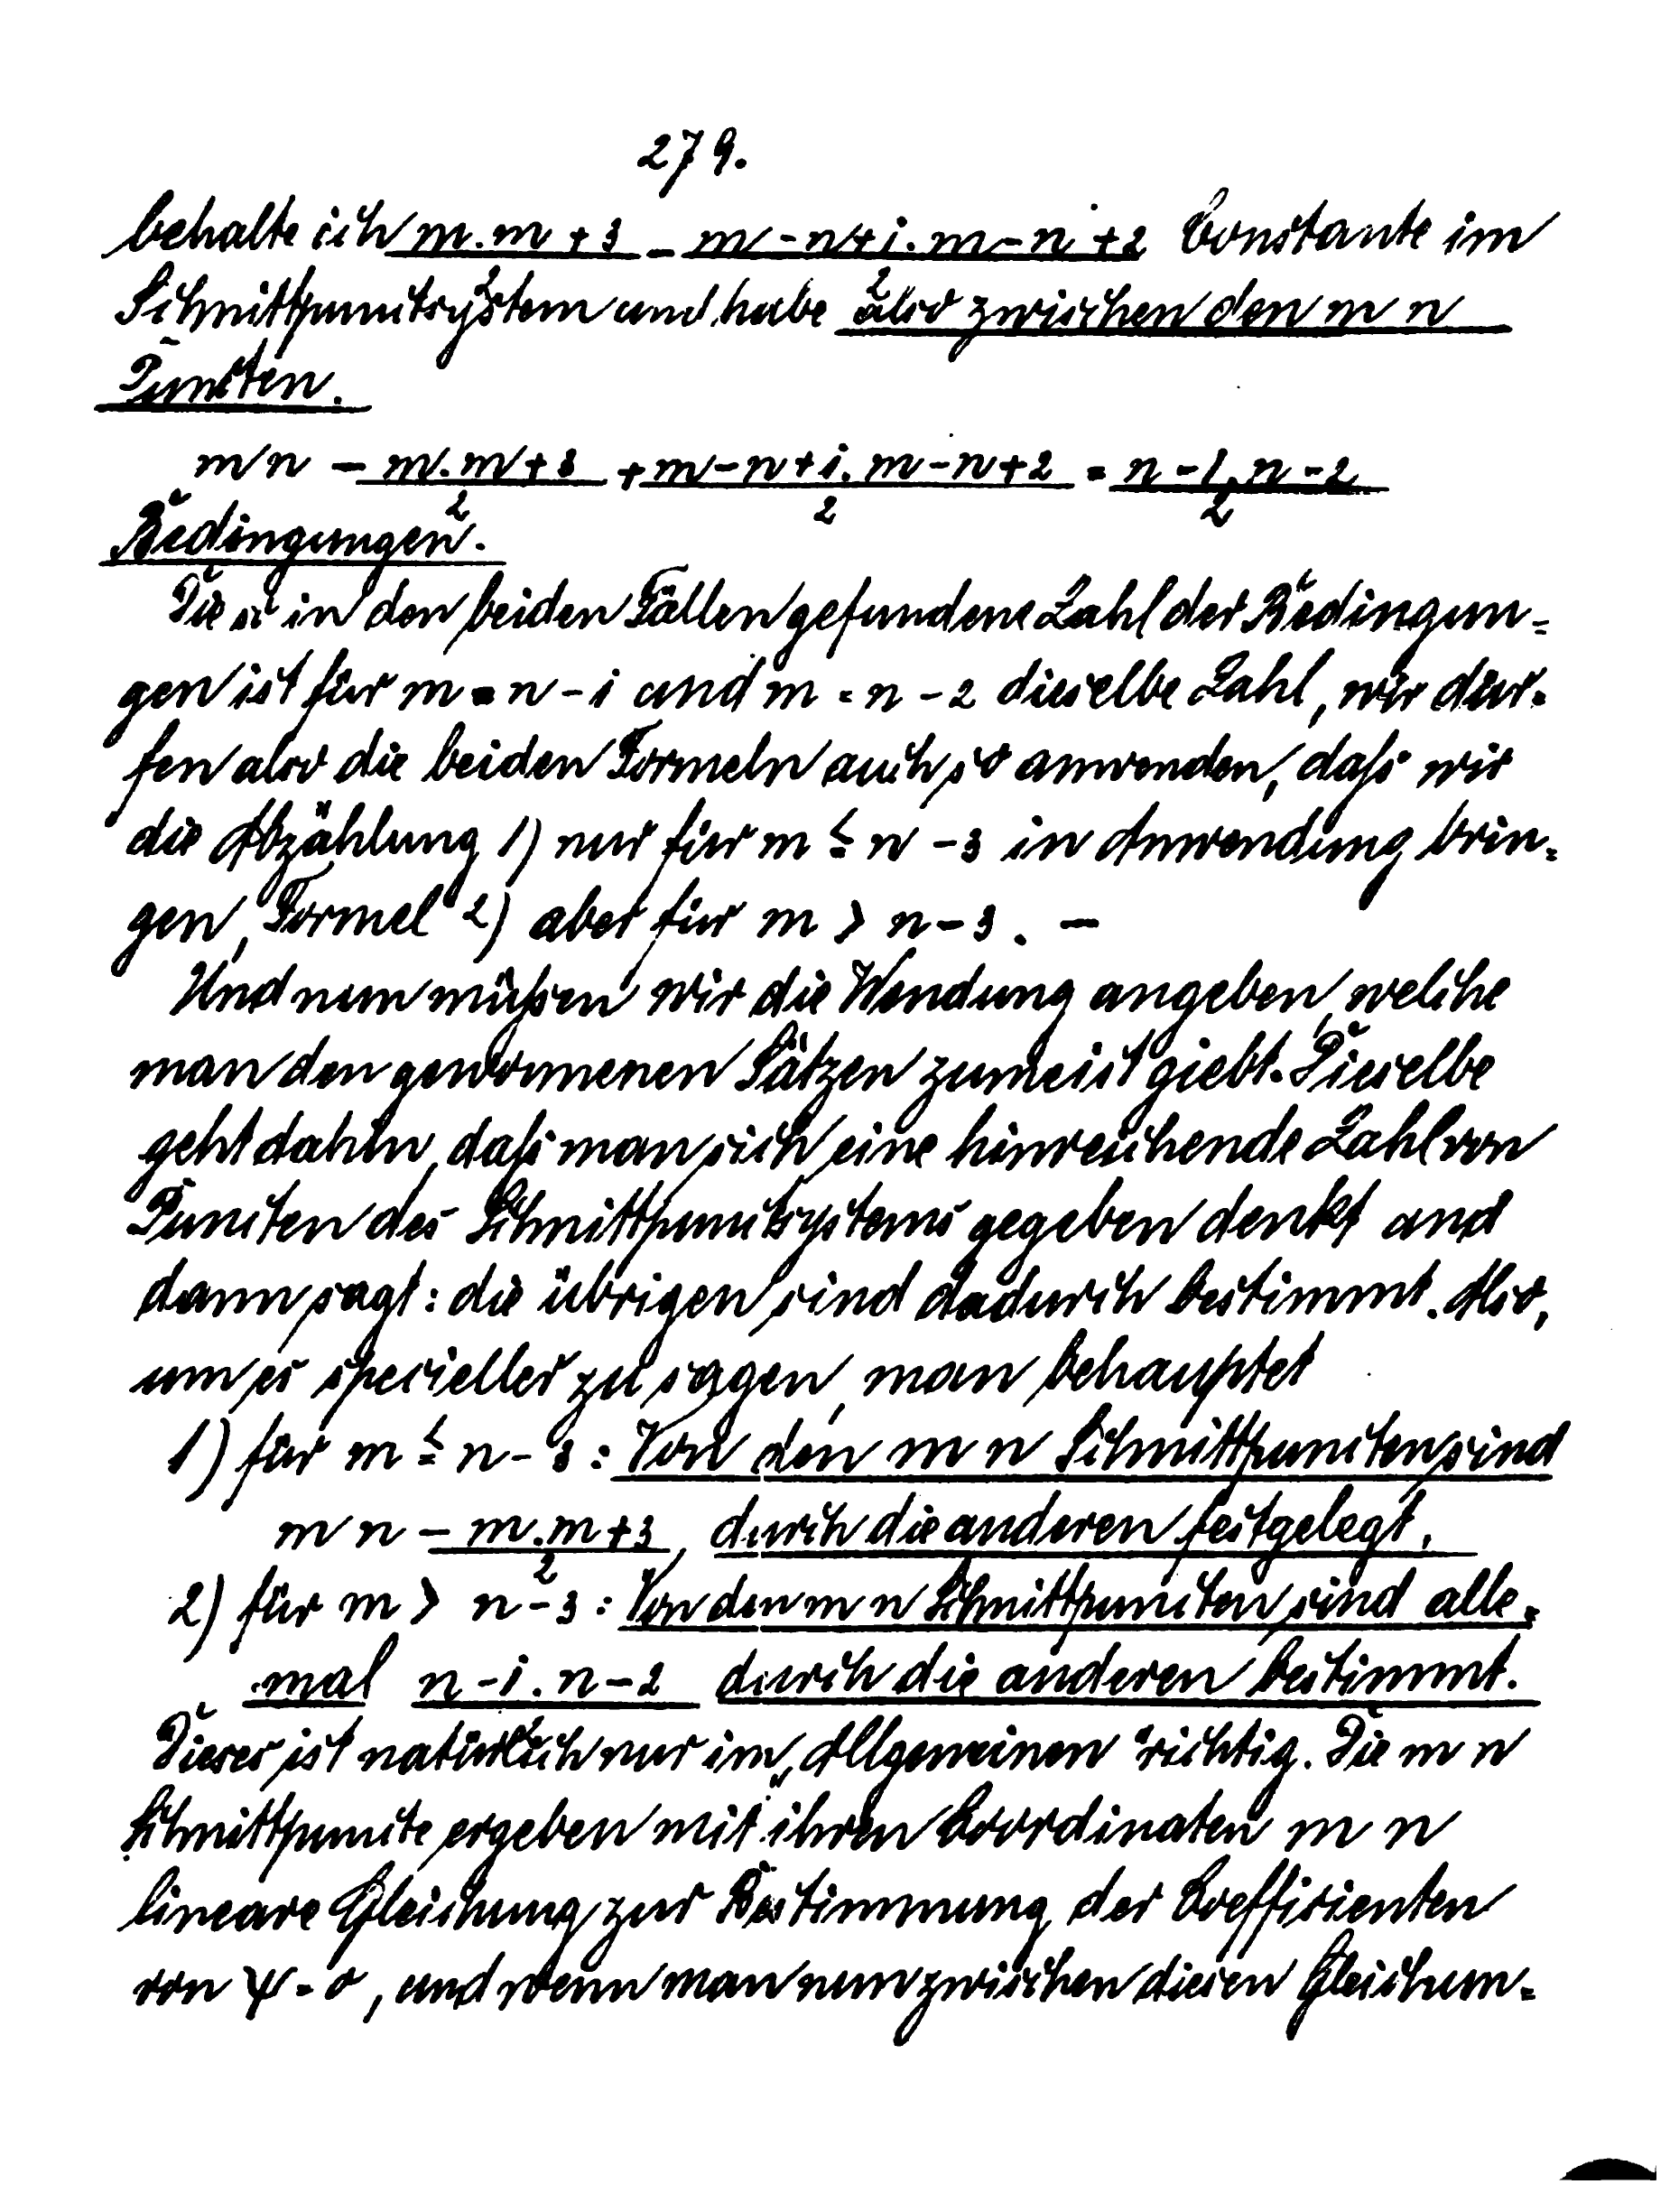 279.
behalte ich m.m+3/2 - m-n+1.m-n+2/2 Constante im
Schnittpunctsystem und habe also zwischen den m n
Puncten.
m n - m.m+3/2 + m-n+1.m-n+2/2 = n-1.n-2/2
Bedingungen.
Die in den beiden Fällen gefundene Zahl der Bedingun=
gen ist für m = n-1 und m = n-2 dieselbe Zahl, wir dür=
fen also die beiden Formeln auch so anwenden, daß wir
die Abzählung 1) nur für m ≦ n-3 in Anwendung brin=
gen, Formel 2) aber für m > n-3. —
Und nun müßen wir die Wendung angeben, welche
man den gewonnenen Sätzen zumeist giebt. Dieselbe
geht dahin, daß man sich eine hinreichende Zahl von
Puncten des Schnittpunctsystems gegeben denkt und
dann sagt: die übrigen sind dadurch bestimmt. Also,
um es specieller zu sagen, man behauptet
1) für m ≦ n-3: Von den m n Schnittpuncten sind
m n - m.m+3/2, durch die anderen festgelegt.
2) für m > n-3: Von den m n Schnittpuncten sind alle=
mal n-1.n-2/2 durch die anderen bestimmt.
Dieses ist natürlich nur im „Allgemeinen" richtig. Die m n
Schnittpuncte ergeben mit ihren Coordinaten m n
lineare Gleichung zur Bestimmung der Coefficienten
von ψ=0, und wenn man nun zwischen diesen Gleichun=